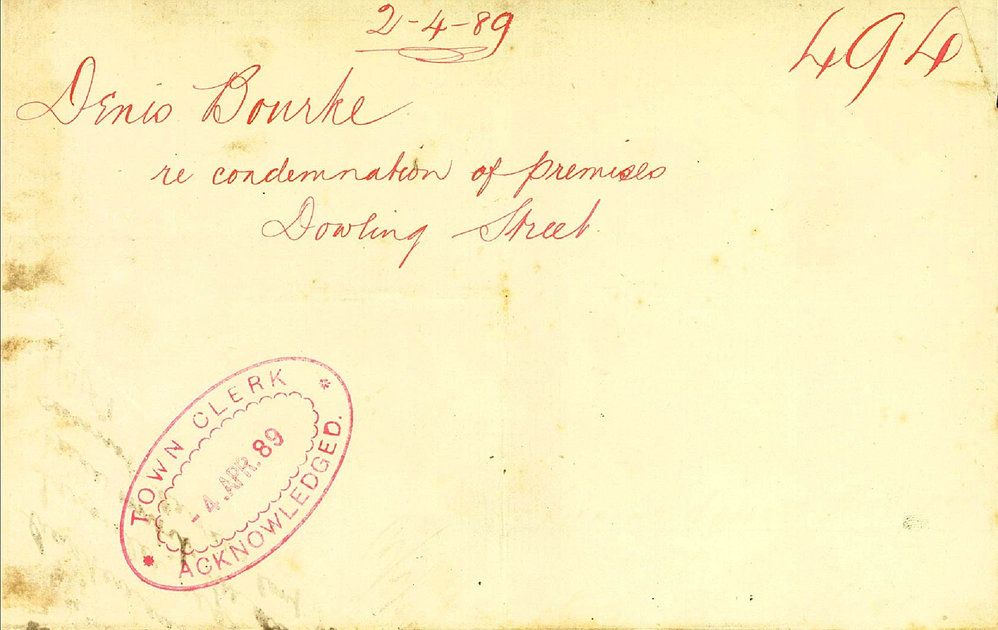 2-4-89
494
Denis Bourke
re condemnation of premises
Dowling Street
TOWN CLERK
- 4. APR. 89
ACKNOWLEDGED.